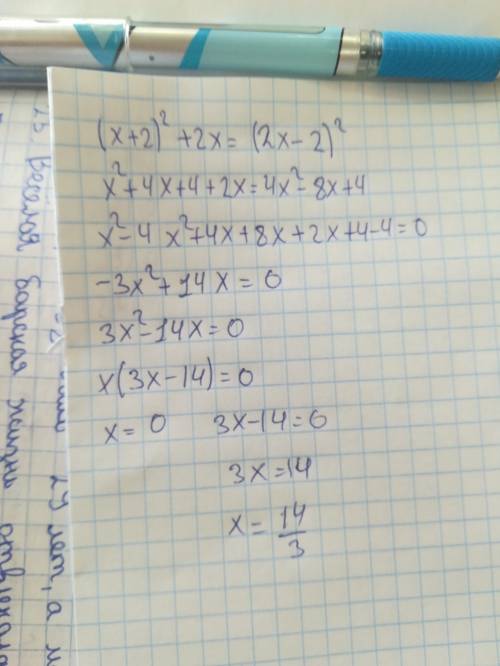 (x+2)² +2x= (2x-2)²
x²+4x+4+2x=4x²-8x+4
x²-4 x²+4x+8x+2x+4-4=0
-3x²+14x=0
3x²-14x=0
x(3x-14)=0
x=0 3x-14=0
3x=14
x=14/3
Веселая барская жизнь
29 лет, а